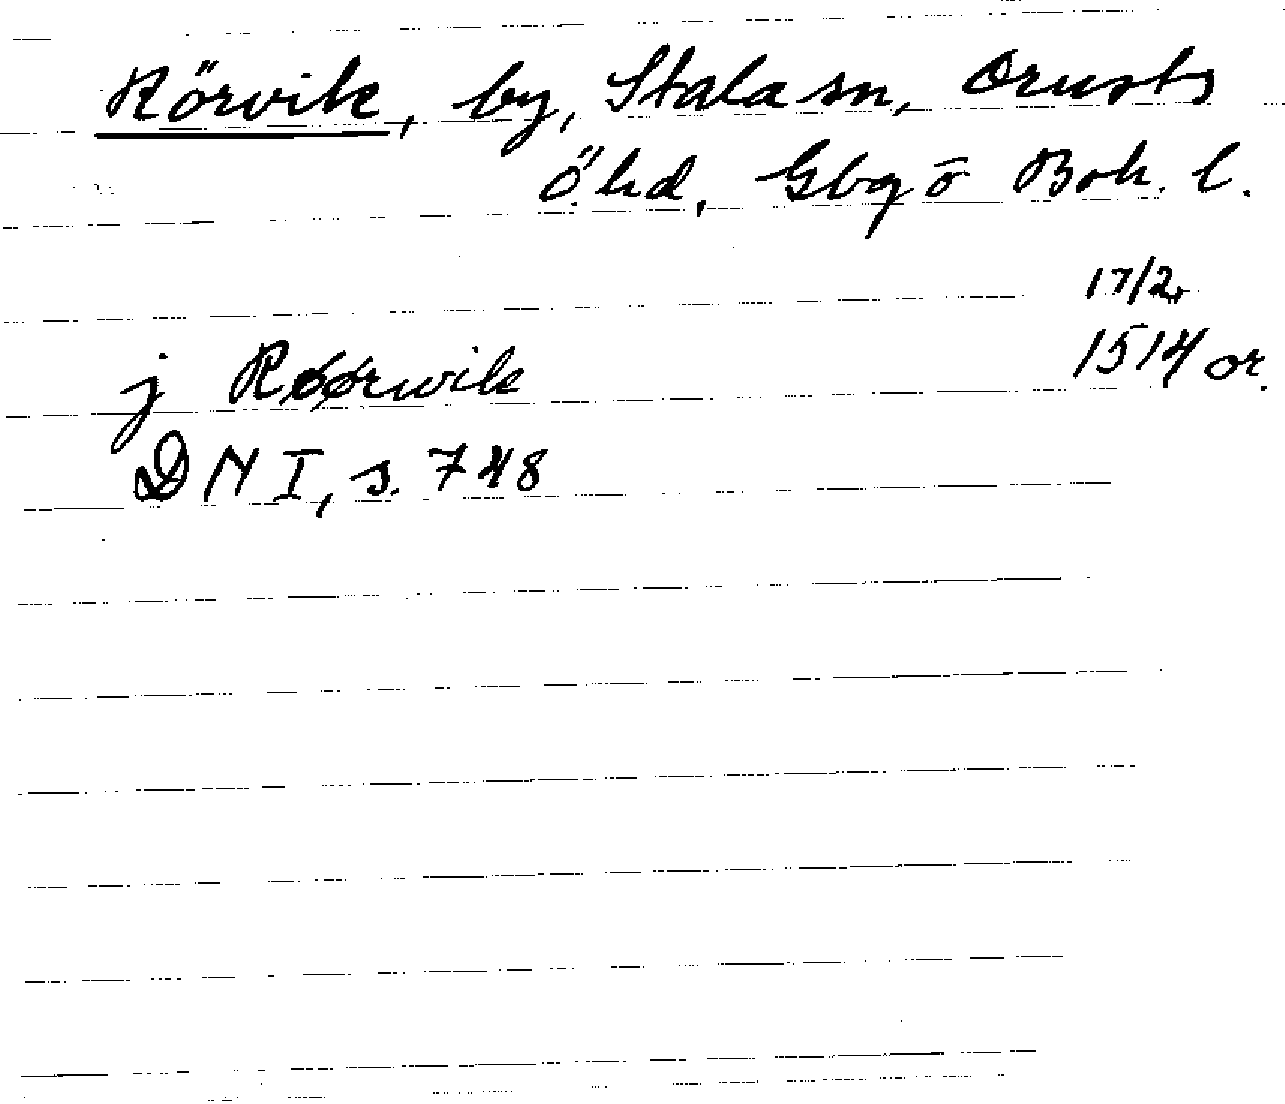 Rörvik, by, Stala sn, Orusts
Ö. hd, Gbg o Boh. l.
17/2
j Røørwik 1514 or.
DN I, s. 748